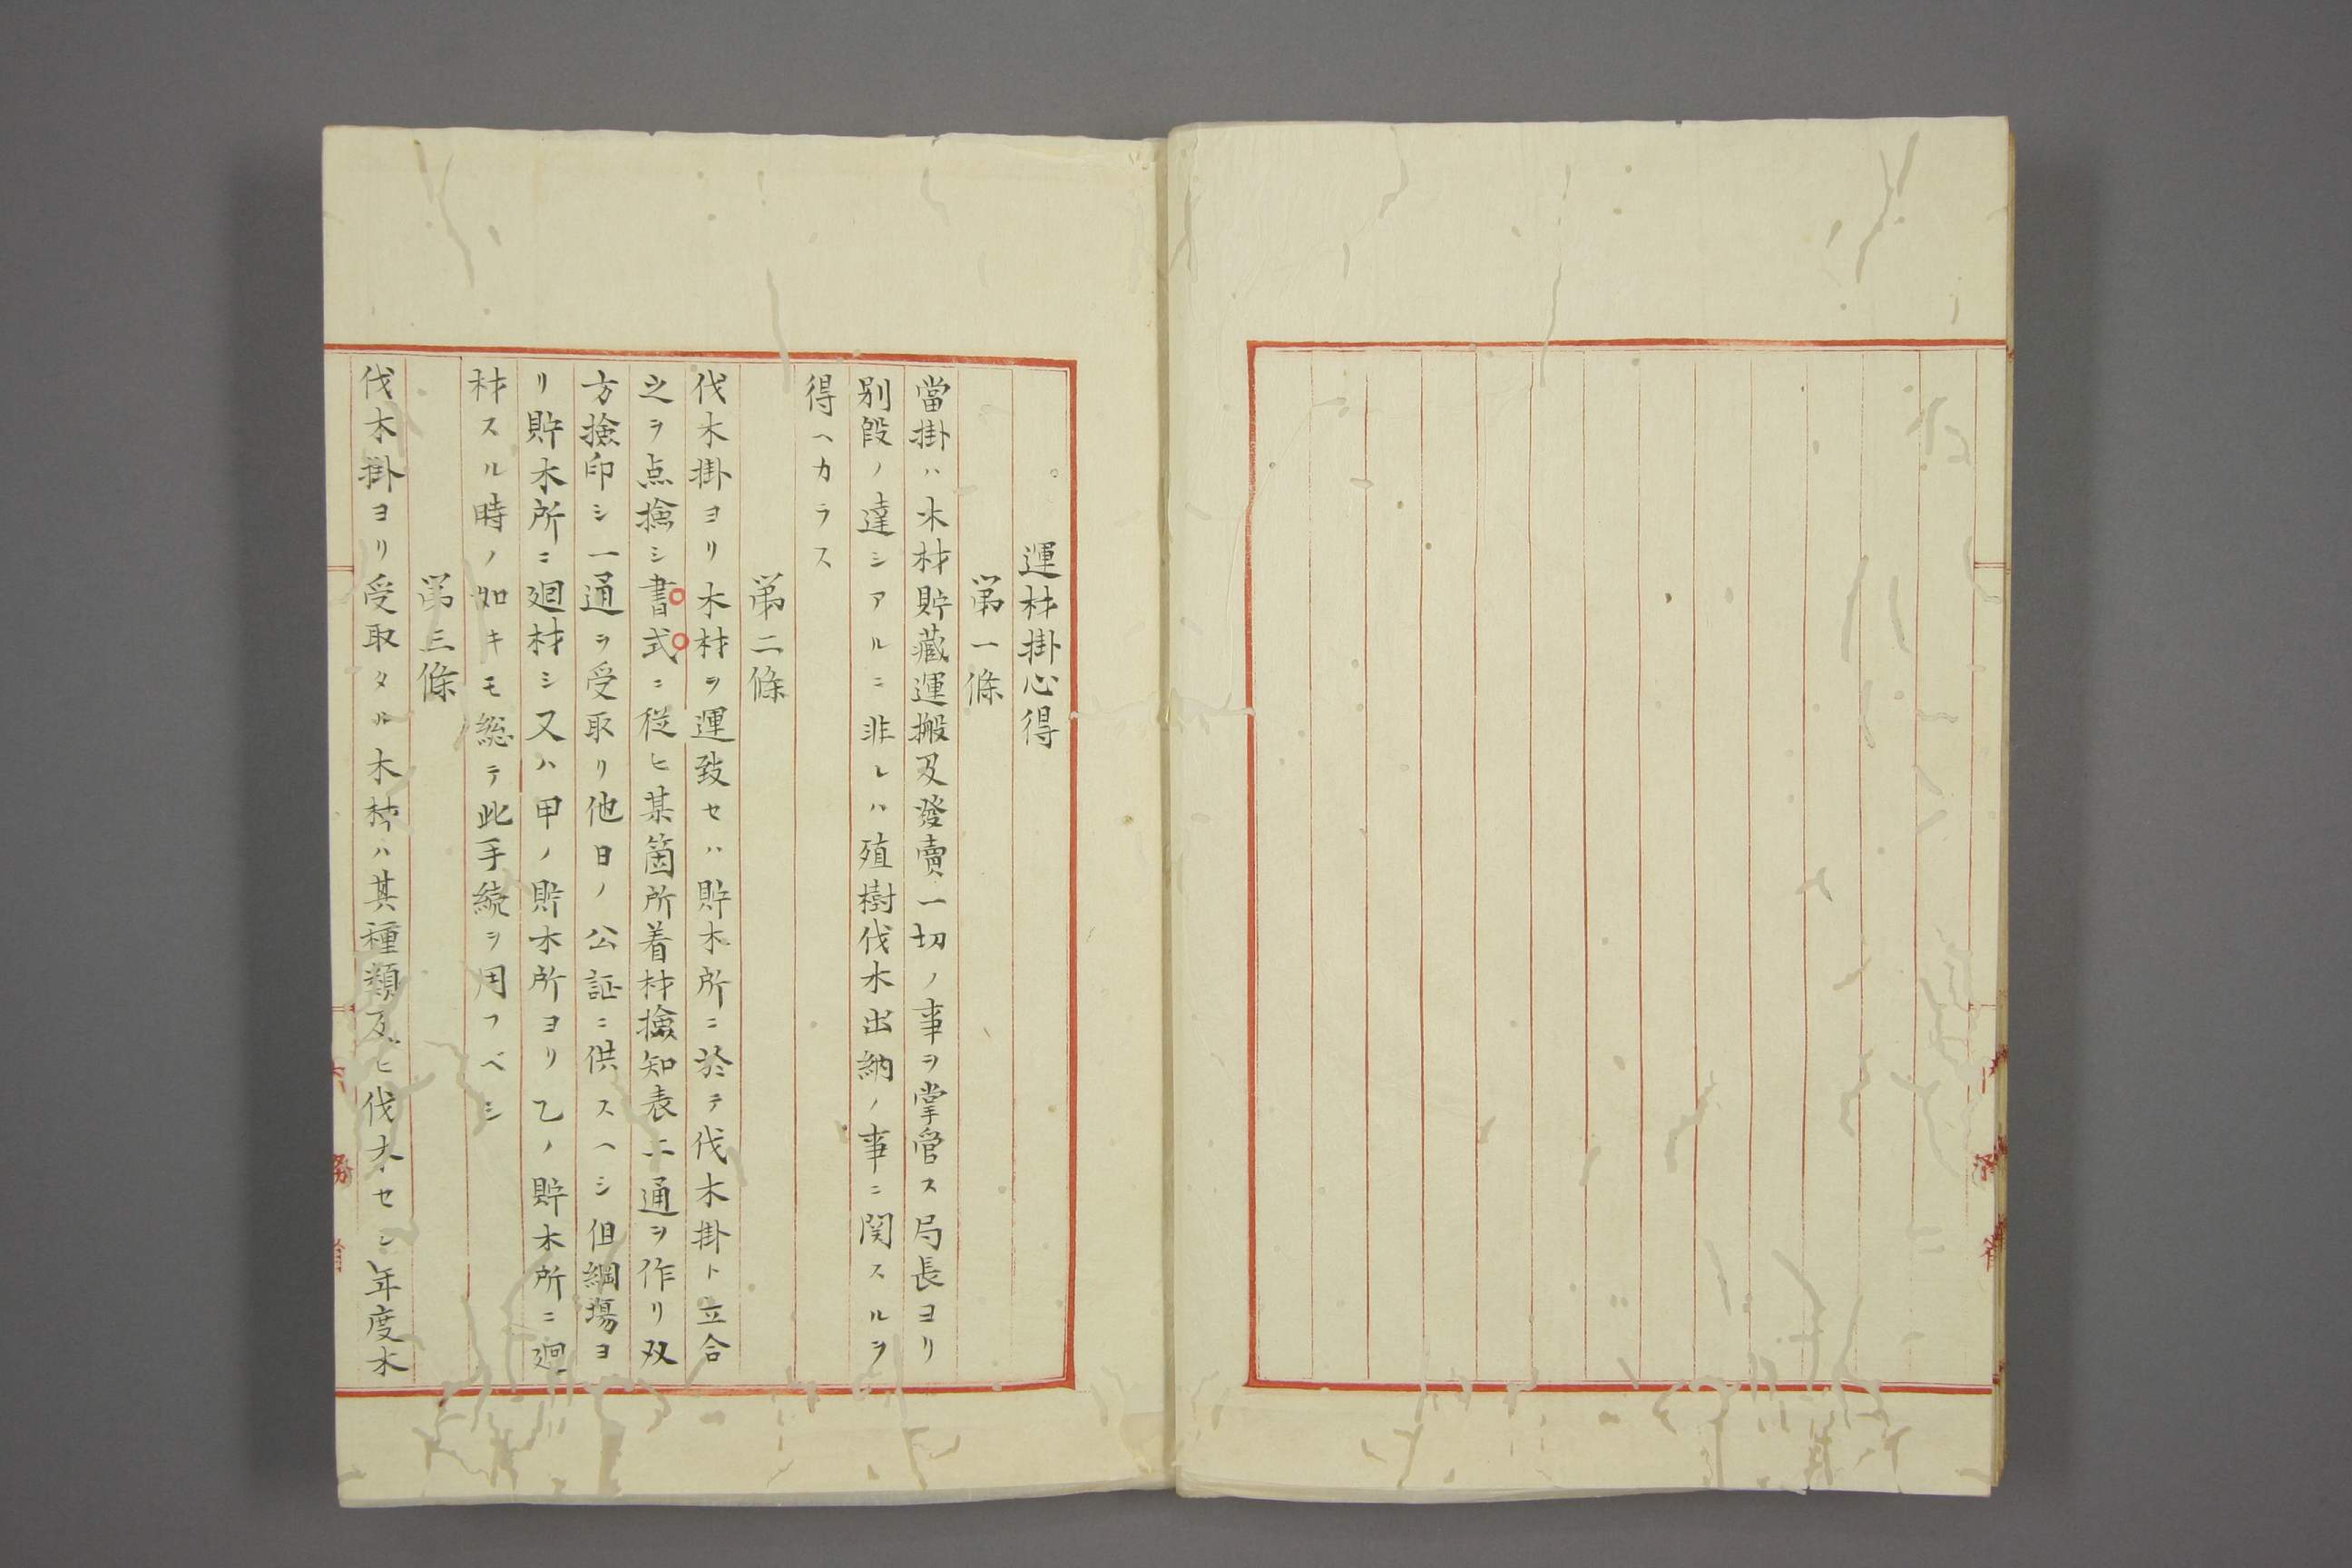 運材掛心得
第一條
當掛ハ木材貯藏運搬及發賣一切ノ事ヲ掌管ス局長ヨリ
別段ノ達シアルニ非レハ殖樹伐木出納ノ事ニ関スルヲ
得ヘカラス
第二條
伐木掛ヨリ木材ヲ運致セハ貯木所ニ於テ伐木掛ト立合
之ヲ点撿シ書式ニ従ヒ某箇所着材撿知表二通ヲ作リ双
方撿印シ一通ヲ受取リ他日ノ公証ニ供スヘシ但綱塲ヨ
リ貯木所ニ廻材シ又ハ甲ノ貯木所ヨリ乙ノ貯木所ニ廻
材スル時ノ如キモ総テ此手続ヲ用フベシ
第三條
伐木掛ヨリ受取タル木材ハ其種類及ビ伐木セシ年度木